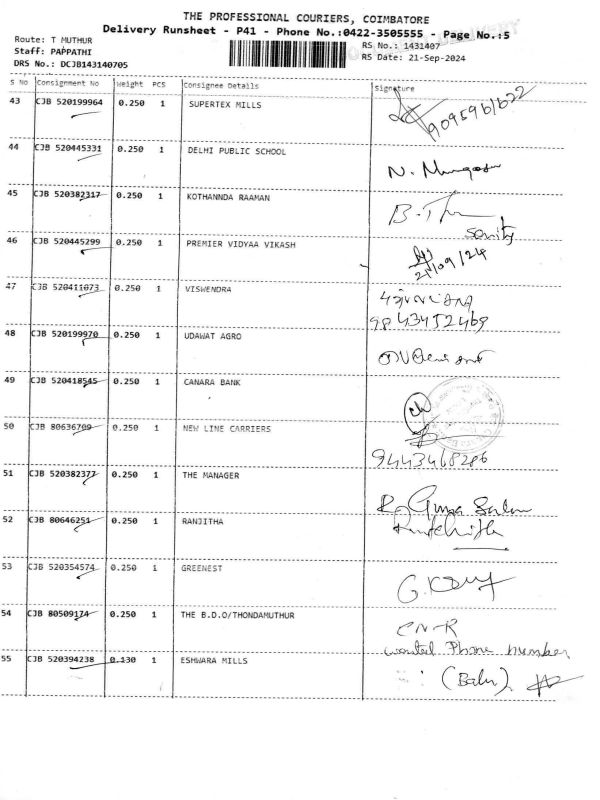 THE PROFESSIONAL COURIERS, COIMBATORE
Delivery Runsheet - P41 - Phone No.:0422-3505555 - Page No.:5
Route: T MUTHUR
RS No.: 1431407
Staff: PAPPATHI
RS Date: 21-Sep-2024
DRS No.: DCJB143140705
S No Consignment No Weight PCS Consignee Details Signature
43 CJB 520199964 0.250 1 SUPERTEX MILLS
44 CJB 520445331 0.250 1 DELHI PUBLIC SCHOOL
N.
45 CJB 520382317 0.250 1 KOTHANNDA RAAMAN
B.
46 CJB 520445299 0.250 1 PREMIER VIDYAA VIKASH
21/09/24
47 CJB 520411073 0.250 1 VISWENDRA
9843452469
48 CJB 520199970 0.250 1 UDAWAT AGRO
49 CJB 520418545 0.250 1 CANARA BANK
50 CJB 80636709 0.250 1 NEW LINE CARRIERS
9443468286
51 CJB 520382377 0.250 1 THE MANAGER
52 CJB 80646251 0.250 1 RANJITHA
53 CJB 520354574 0.250 1 GREENEST
G.
54 CJB 80509174 0.250 1 THE B.D.O/THONDAMUTHUR
CN-R
wanted Phone number
55 CJB 520394238 0.130 1 ESHWARA MILLS
(Balu)